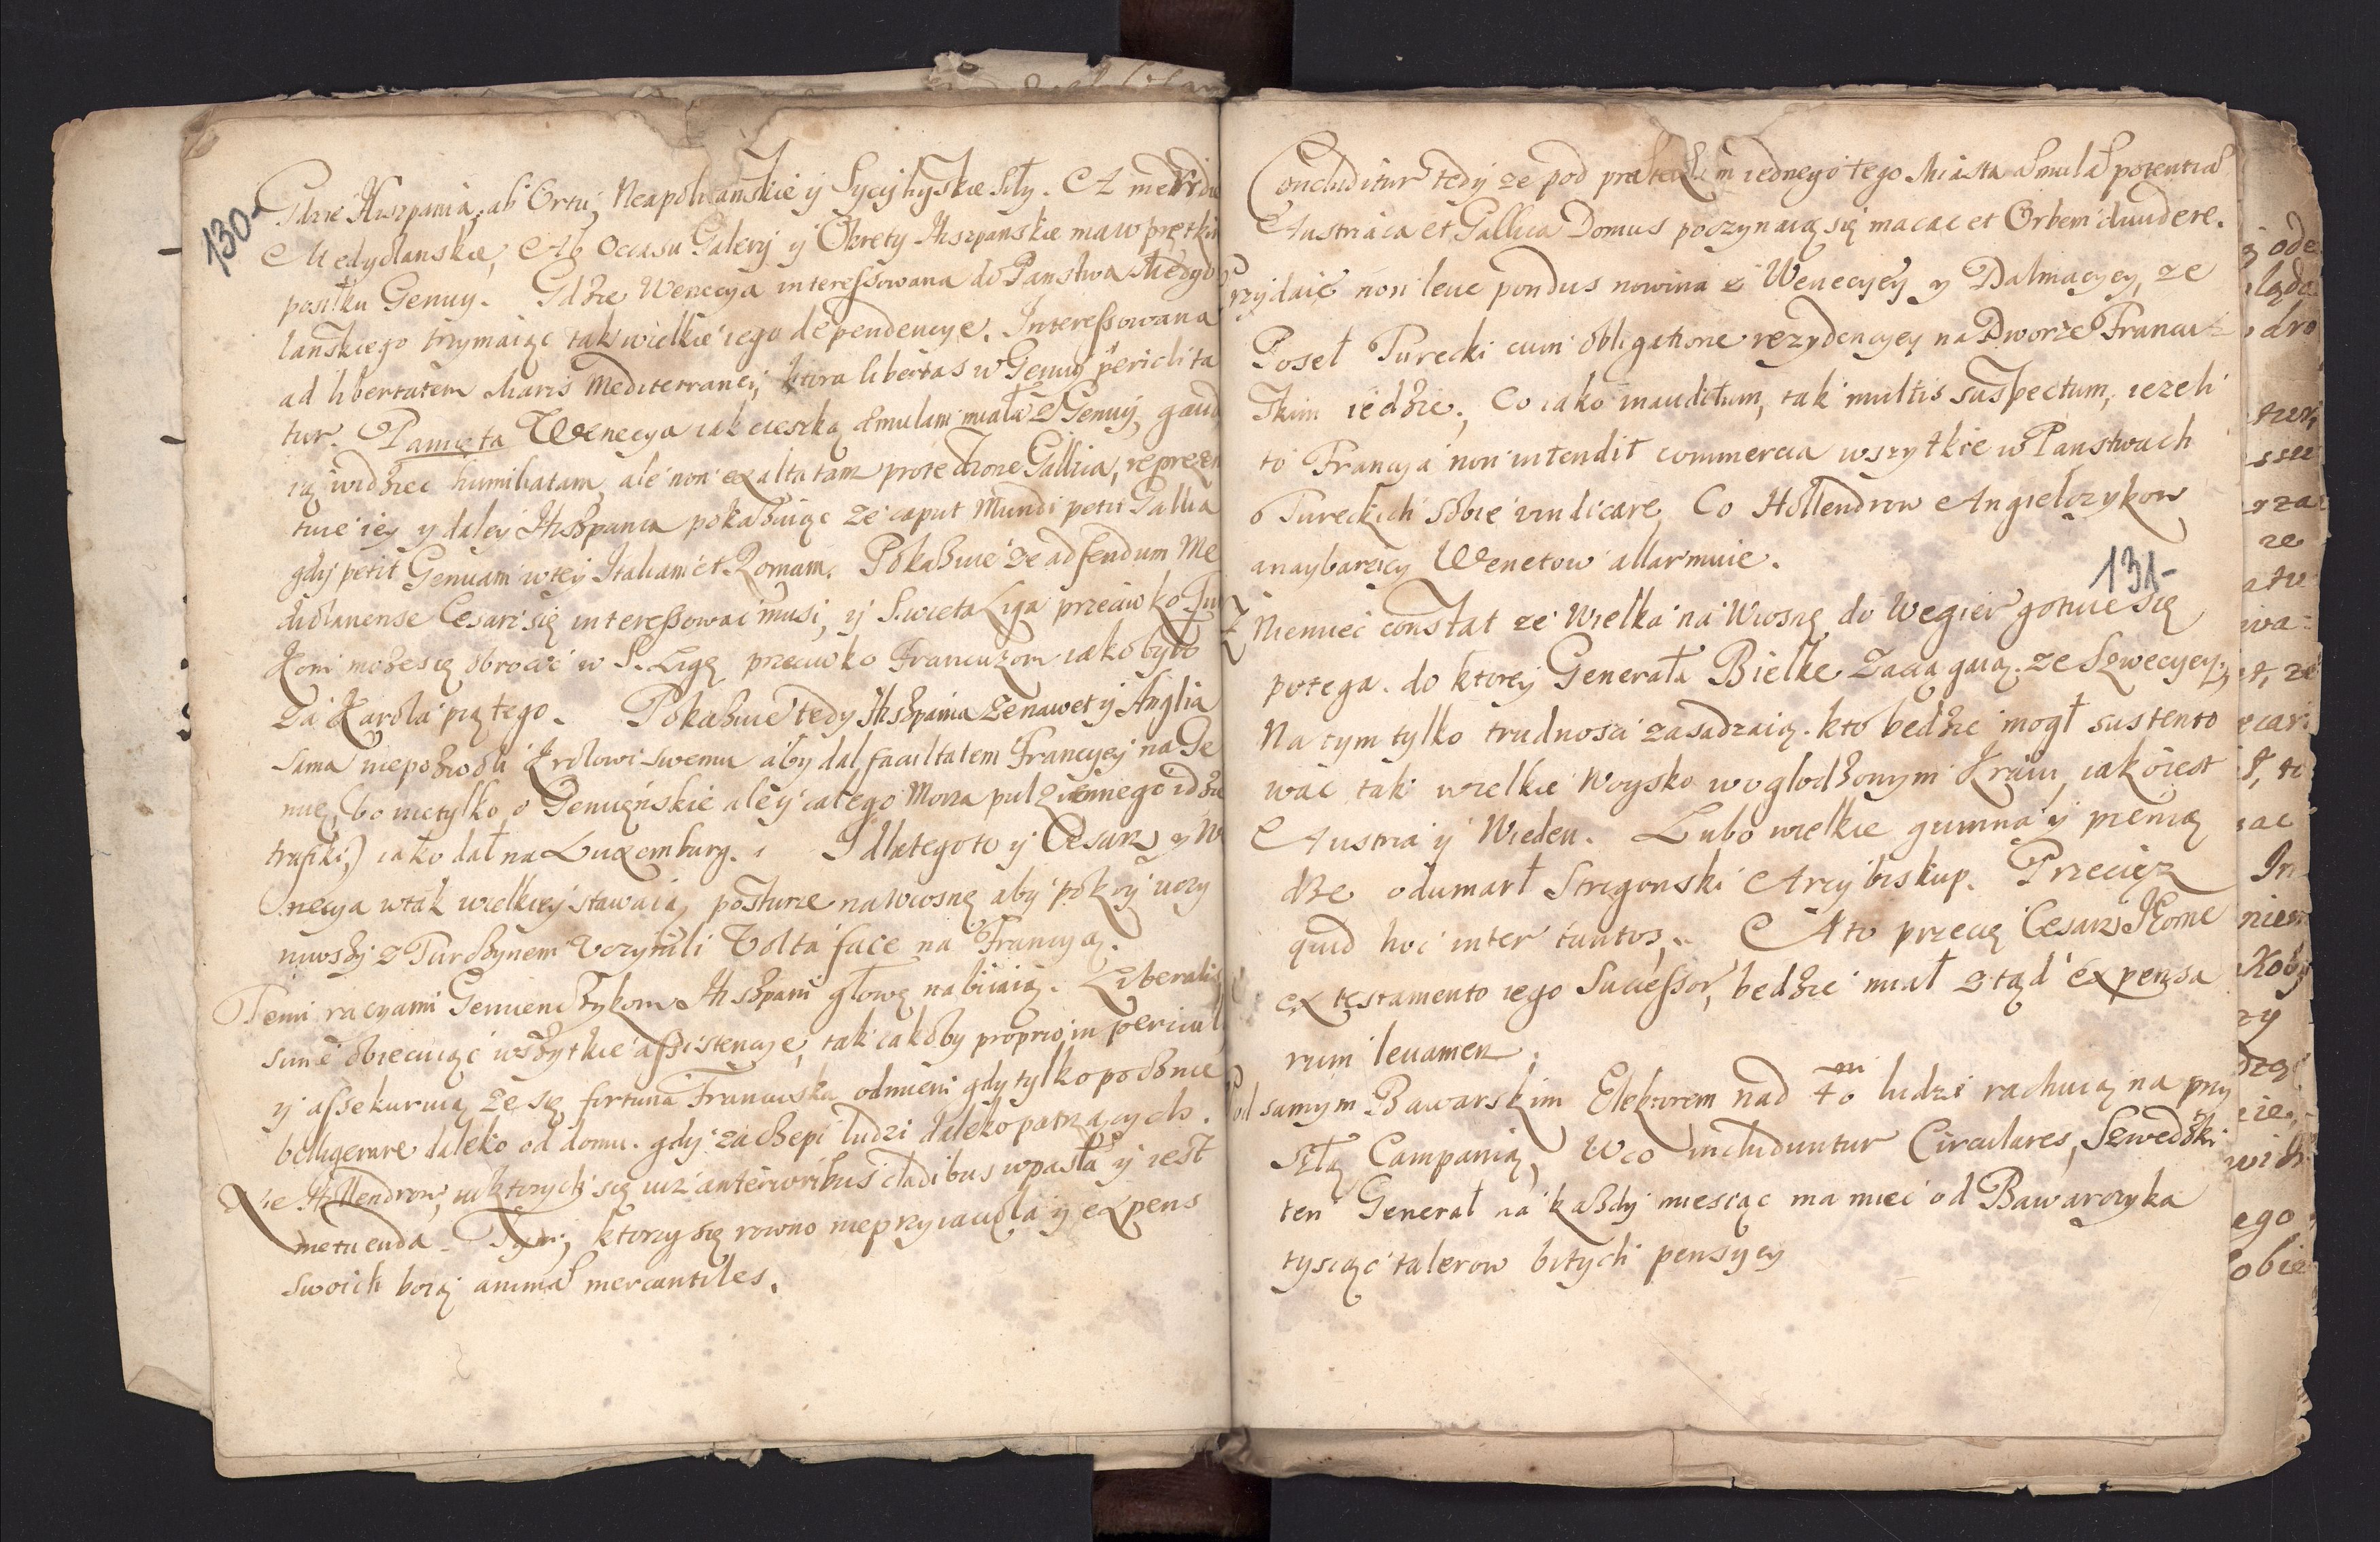 130-
Gdzie Hiszpania, ab Ortu, Neapolitanskie y Sycylyiskie siły. A meridie
Medyolanskie, Ab Occasu Galery y Okręty Hiszpanskie ma w prętkim
posiłku Genuy. Gdzie Wenecya interessowana do Panstwa Medyo
lanskiego trzymaiąc tak wielkie iego dependencye. Interessowana
ad libertatem Maris Mediterranei, ktora libertas w Genuy periclita
tur. Pamięta Wenecya iak cieszką æmulam miała z Genuy, gaudet
ią widziec humiliatam, ale non exaltatam protectione Gallica, reprezen
tuie iey y daley Hiszpania pokazuiąc ze caput Mundi petit Gallia
gdy petit Genuam w tey Italiam et Romam. Pokazuie ze ad feudum Me
diolanense Cesarz się interessowac musi, y Swięta Liga przeciwko Tur
kom może się obrocic w S. Ligę przeciwko Francuzom iako było
za Karola piątego. Pokazuie tedy Hiszpania ze nawet y Anglia
sama niepozwoli Krolowi swemu aby dal facultatem Francyey na Ge
nuę, (bo nietylko o Genuęnskie ale y całego Morza pulziemnego idzie
trafiki,) iako dał na Luxemburg. I dlategoto y Cesarz y We
necya w tak wielkiey stawaią posturze na wiosnę aby pokoy uczy
niwszy z Turczynem uczynili Volta face na Francyą.
Temi racyami Genuenczykom Hiszpani głowę nabiiaią. Liberalis
sime obiecuiąc wszytkie assistencye, tak iakoby proprio in periculo
y assekuruią ze się fortuna Francuska odmieni gdy tylko pocznie
belligerare daleko od domu. gdy zaczepi ludzi daleko patrzących.
Nie Hollendrow, w ktorych się iuż anterioribus cladibus wpasła y iest
metuenda. Tych, ktorzy się rowno nieprzyiaciela y expens
swoich boią animæ mercantiles.
Concluditur tedy ze pod prætextem iednego tego Miasta æmulæ potentiæ
Austriaca et Gallica Domus poczynaią się macac et Orbem diuidere.
Przydaie non leue pondus nowina z Wenecyey y Dalmacyey, ze
Poseł Turecki cum obligatione rezydencyey na Dworze Francu-
skim iedzie. Co iako inauditum, tak multis suspectum, iezeli
to Francya non intendit commercia wszytkie w Panstwach
Tureckich sobie vindicare. Co Hollendrow Angielczykow
anaybarzicy Wenetow allarmuie.
131-
Z Niemiec constat ze Wielka na Wiosnę do Wegier gotuie się
potega. do ktorey Generała Bielke zaciągaią ze Szwecyey.
Na tym tylko trudnosci zasadzaią. kto bedzie mogł sustento
wac tak wielkie Woysko w ogłodzonym Kraiu, iako iest
Austria y Wieden. Lubo wielkie gumna y pienią
dze odumarł Strigonski Arcybiskup. Przecięz
quid hoc inter tantos. A to przecię Cesarz Home
ex testamento iego Successor, bedzie miał ztąd expensa
rum leuamen.
Pod samym Bawarskim Elektorem nad 40 m ludzi rachuią na przy
szłą Campanią, W co includuntur Circulares, Szwedzki
ten Generał na kazdy miesiąc ma miec od Bawarczyka
tysiąc talerow bitych pensyey